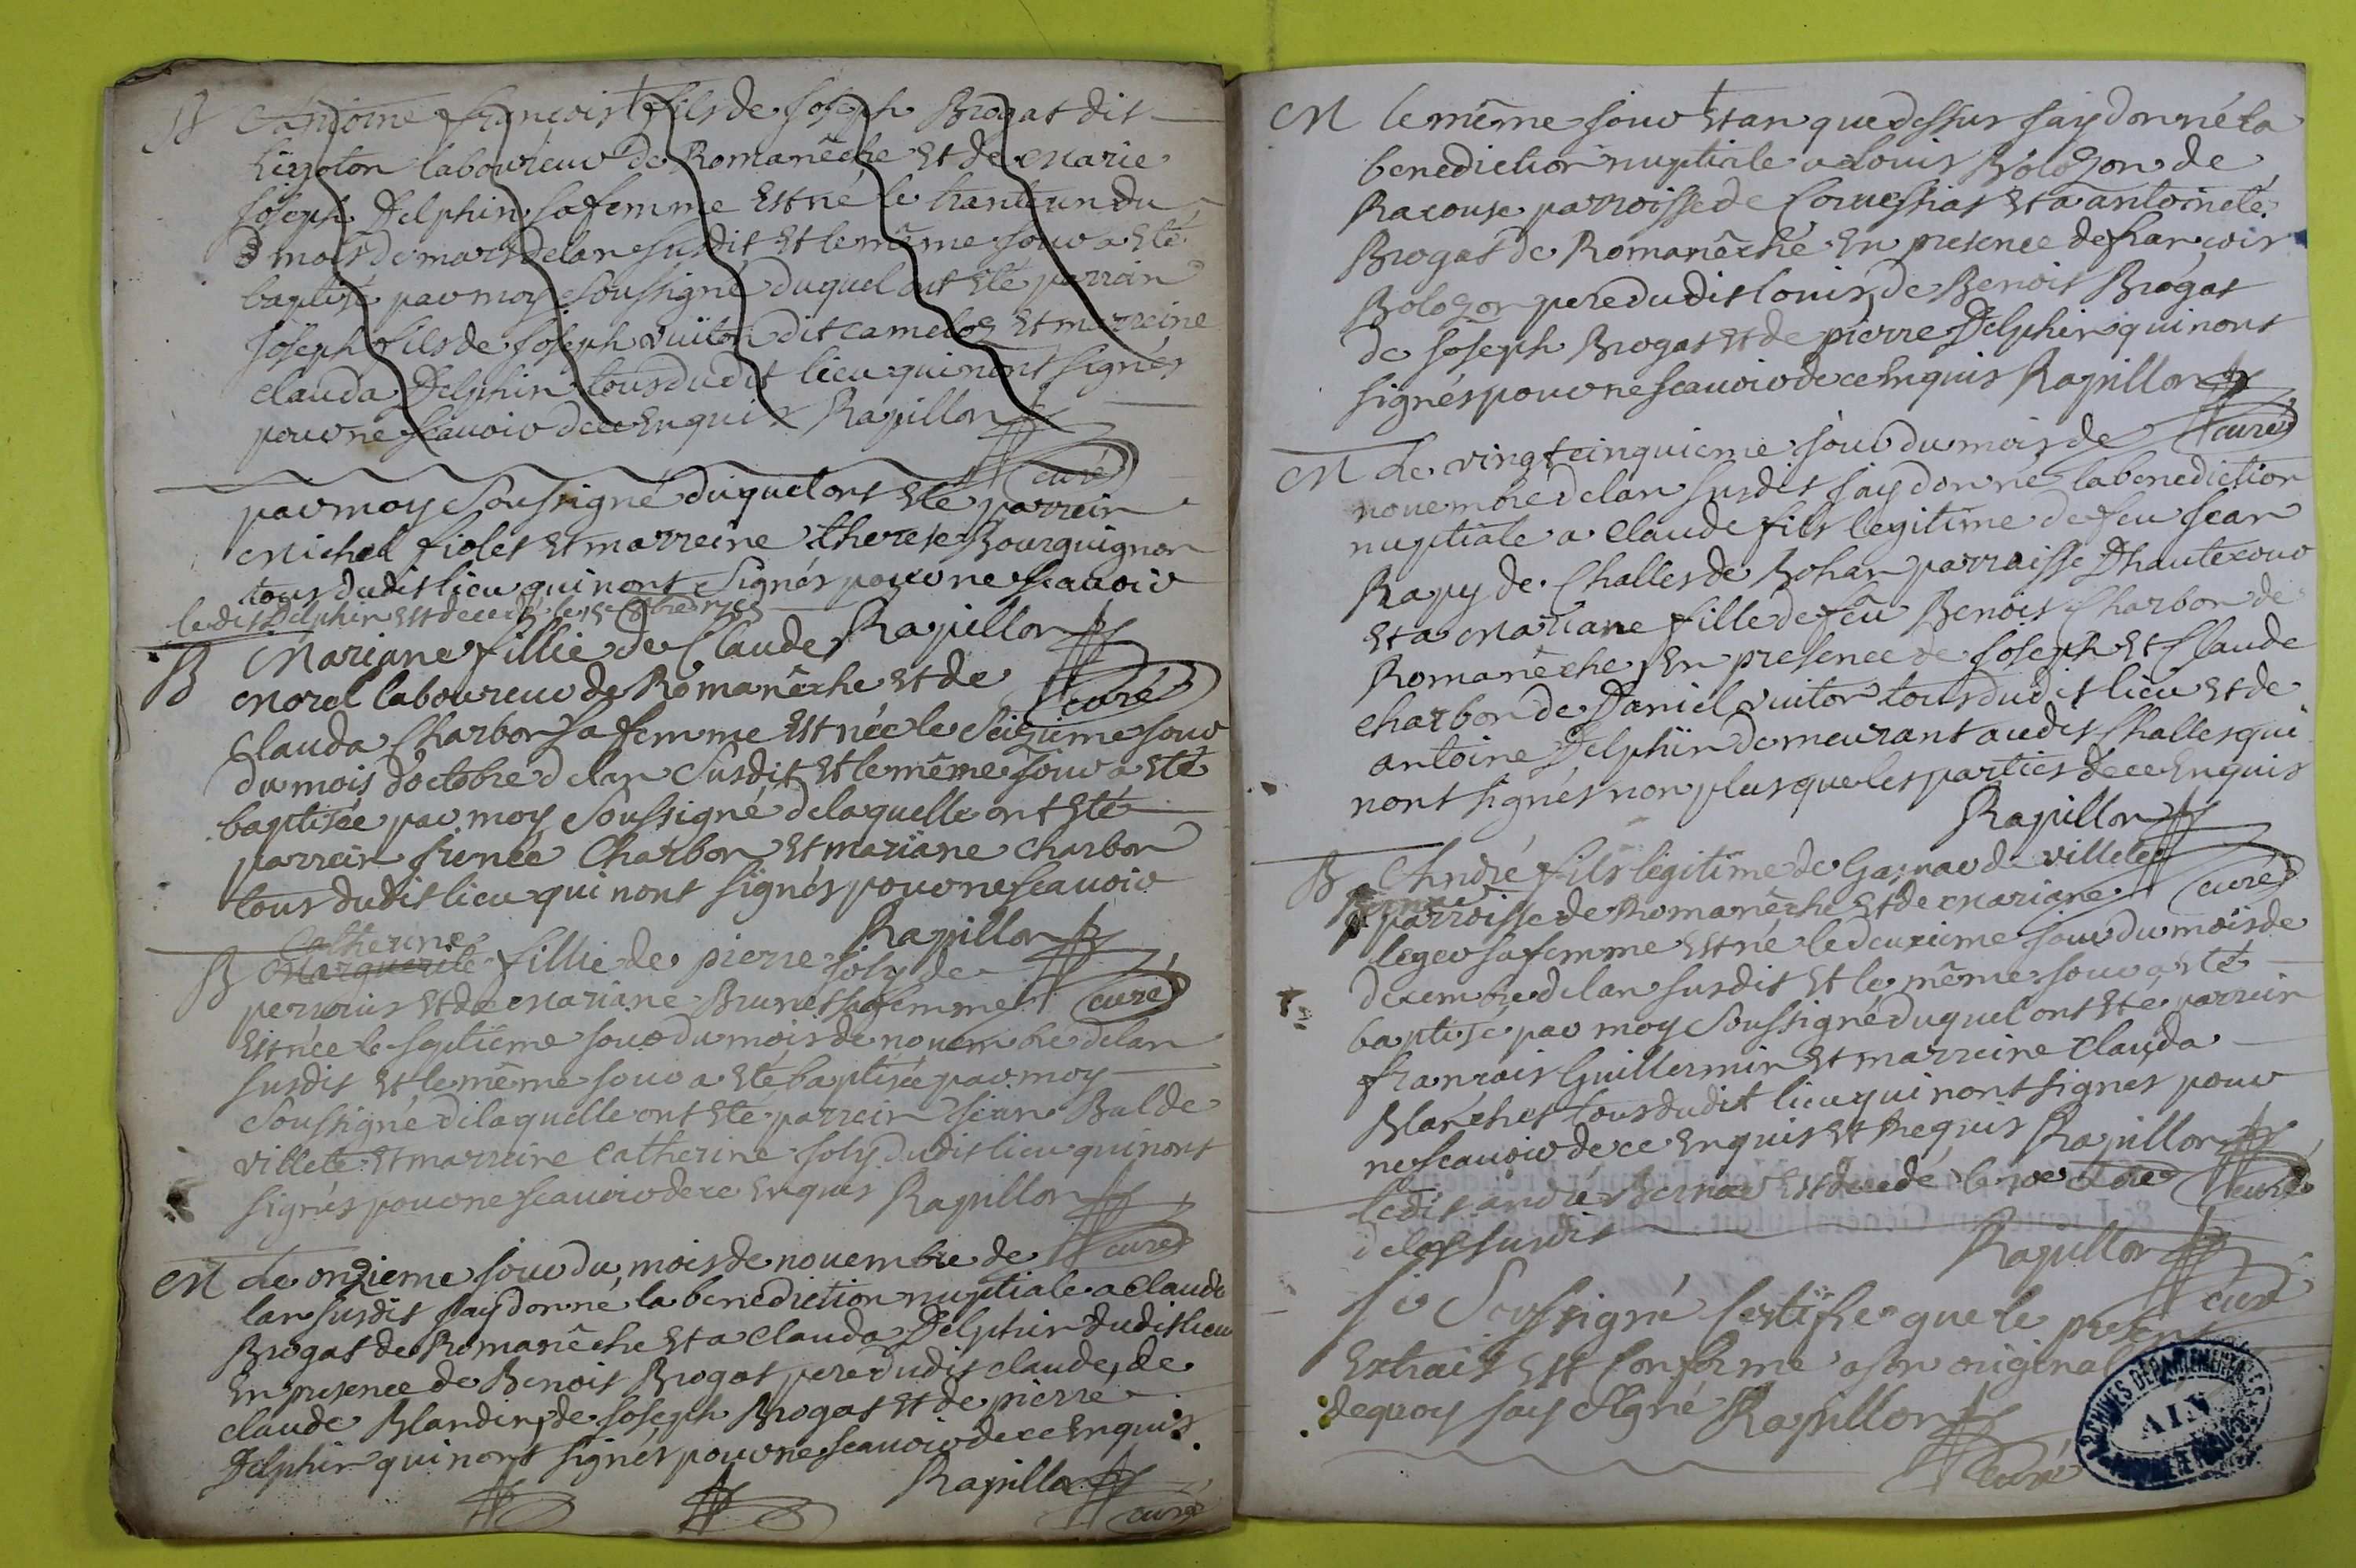 B Antoine françois fils de joseph Brogat dit
laboureur de Romanêche et de marie
joseph Delphin sa femme est né le trante un du
mois de mars de lan susdit et le même jour a eté
baptisé par moy soussigné duquel ont eté parrain
joseph fils de joseph vuiton dit camelos et marreine
clauda Delphin tous dudit lieu qui nont signés
pour ne scauoir de ce enquis Rapillon
curé
par moy soussigné duquel ont eté parrein
michel fiolet et marreine therese Bourguignon
tous dudit lieu qui nont signés pour ne scauoir
ledit Delphin est decedé le 15e
Rapillon
B Mariane fillie de Claude
morel laboureur de Romanêche et de
curé
clauda Charbon sa femme est née le seizieme jour
du mois doctobre de lan susdit et le même jour a eté
baptisée par moy soussigné de laquelle ont eté
parrein frienée Charbon et mariane charbon
tous dudit lieu qui nont signés pour ne scauoir
Rapillon
catherine
B Marguerite fillie de pierre joly de
perrouis et de mariane Brunet sa femme
curé
est née le septieme jour du mois de nouembre de lan
susdit et le même jour a eté baptisée par moy
soussigné de laquelle ont eté parrein jean Bal de
villete et marreine catherine joly dudit lieu qui nont
signés pour ne scauoir de ce enquis Rapillon
curé
M Le onzieme jour du mois de nouembre de
lan susdit jay donné la benediction nuptiale a claude
Brogat de Romanêche et a clauda Delphin dudit lieu
en presence de Benoit Brogat pere dudit claude, de
claude Blandin, de joseph Brogat et de pierre
Delphin qui nont signés pour ne scauoir de ce enquis
Rapillon
curé
M le même jour et an que dessus jay donné la
benediction nuptiale a Louis Bolozon de
Racouse parroisse de Corueissiat et a antoinete
Brogat de Romanêche en presence de françois
Bolozon pere dudit louis, de Benoit Brogat
de joseph Brogat et de pierre Delphin qui nont
signés pour ne scauoir de ce enquis Rapillon
curé
M Le vingt cinquieme jour du mois de
nouembre de lan susdit jay donné la benediction
nuptiale a claude fils legitime de feu jean
Rapy de Challes de Bohan parroisse Dhautecour
et a mariane fille de feu Benoit Charbon de
Romanêche, en presence de joseph et Claude
charbon de Daniel vuiton tous dudit lieu et de
antoine Delphin demeurant audit Challes qui
nont signés non plus que les parties de ce enquis
Rapillon
curé
B André fils legitime de de villete
parroisse de Romanêche et de mariane
leger sa femme est né le deuxieme jour du mois de
decembre de lan susdit et le même jour a eté
baptisé par moy soussigné duquel ont eté parrein
francois Guillermin et marreine clauda
Blanchet tous dudit lieu qui nont signés pour
ne scauoir de ce enquis et requis Rapillon
curé
ledit andré est decedé le
de lan susdit
Rapillon
curé
je soussigné certifie que le present
extrait est conforme a son original
dequoy jay signé Rapillon
curé
ARCHIVES DÉPARTEMENTALES
AIN